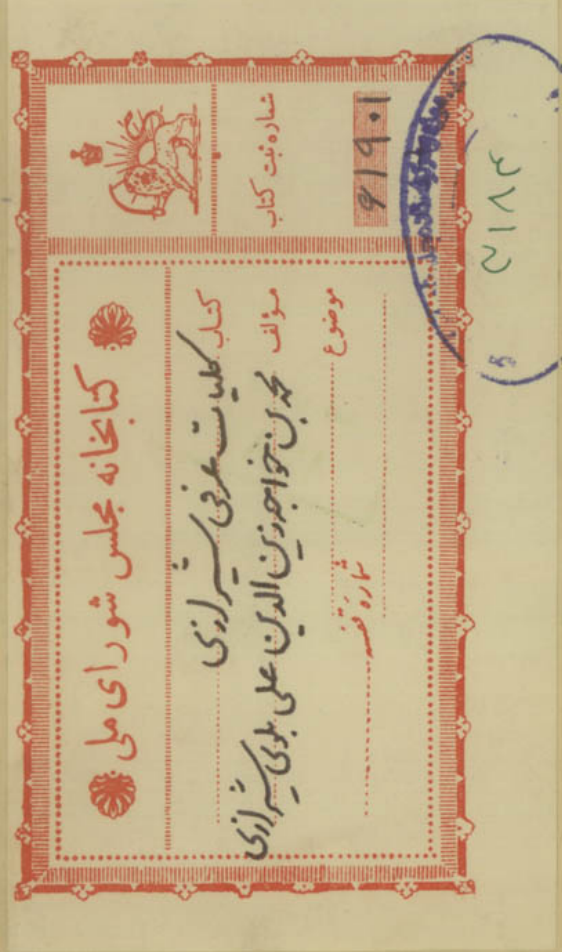 کتابخانه مجلس شورای ملی
کتاب کلیات عرفی شیرازی
مؤلف محمد بن خواجه زین الدین علی بلوی شیرازی
موضوع
شماره قفسه
شماره ثبت کتاب